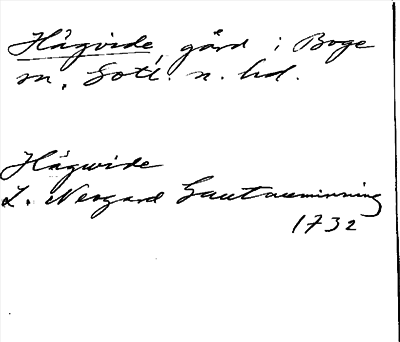 Hågvide, gård i Boge
sn, Gotl. n. hd.
Hågwide
L. Neogard Gautauminning
1732